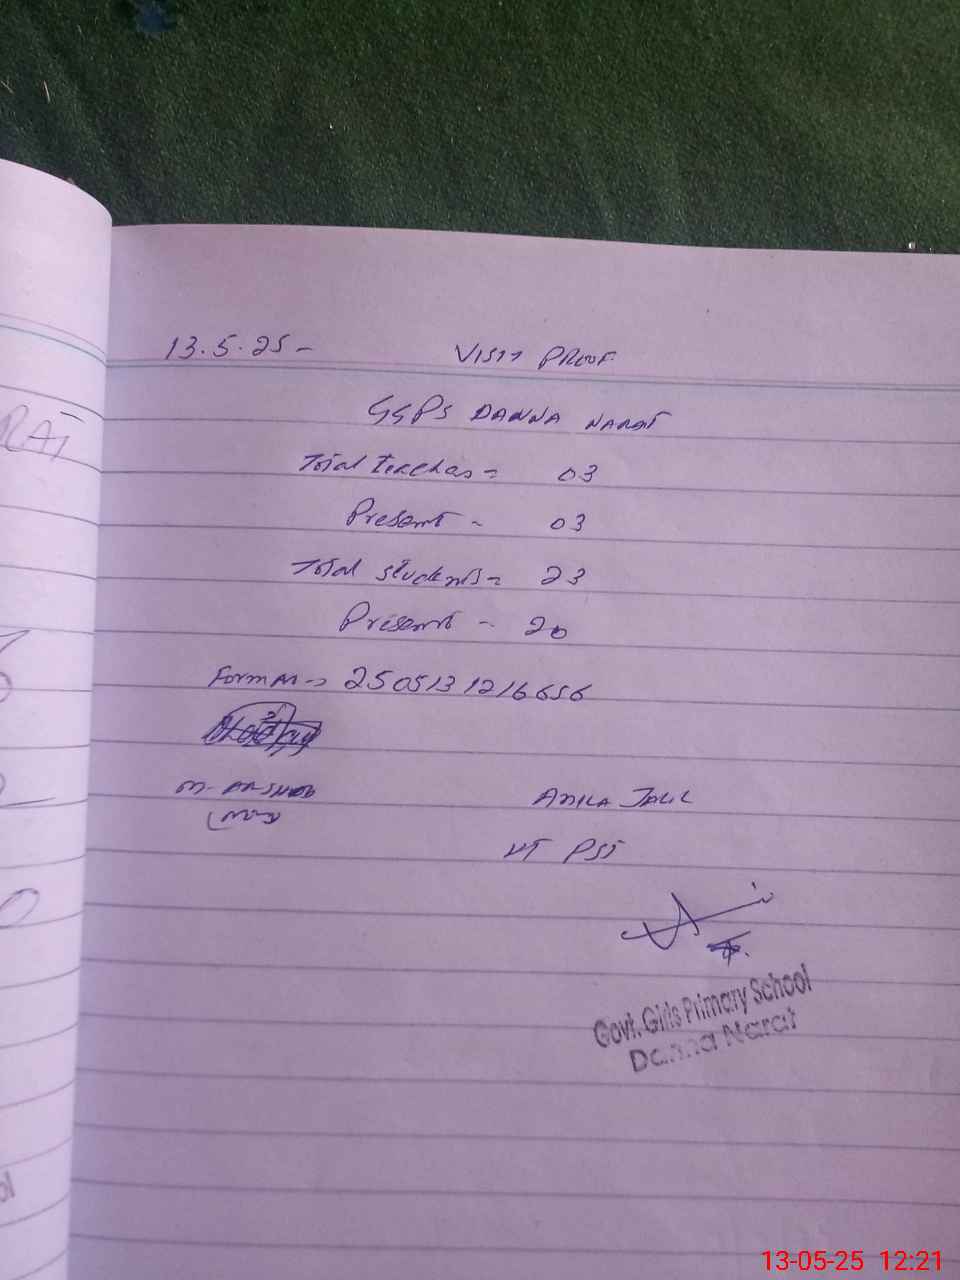 RAT
13.5.25- VISIT PROOF
GGPS DANNA NARAT
Total teachers = 03
Present - 03
Total students = 23
Present - 20
Format -> 2505131216656
M. ARSHAD
ANILA JALIL
HT PST
Govt. Girls Primary School
Danna Narat
ol
13-05-25 12:21